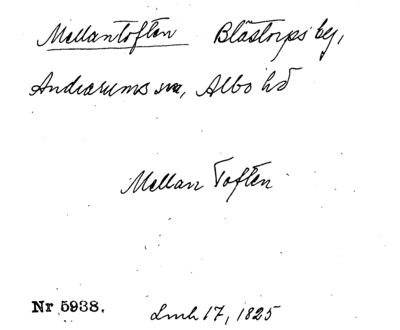 Mellantoften Blåstorps by,
Andrarums sn, Albo hd
Mellan Toften
Nr 5938.
Lmh 17, 1825